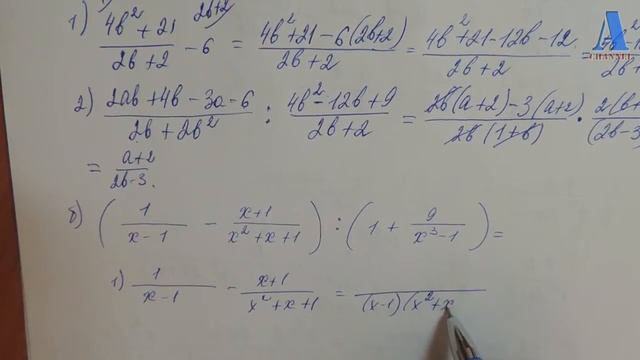 2b+2
1) (4b² + 21)/(2b + 2) - 6 = (4b² + 21 - 6(2b+2))/(2b + 2) = (4b² + 21 - 12b - 12)/(2b + 2) =
A CHANNEL
2) (2ab + 4b - 3a - 6)/(2b + 2b²) : (4b² - 12b + 9)/(2b + 2) = (2b(a+2) - 3(a+2))/(2b(1+b)) · 2(b+/(2b-3
= (a+2)/(2b-3)
б) (1/(x-1) - (x+1)/(x²+x+1)) : (1 + 9/(x³-1)) =
1) 1/(x-1) - (x+1)/(x²+x+1) = /(x-1)(x²+x